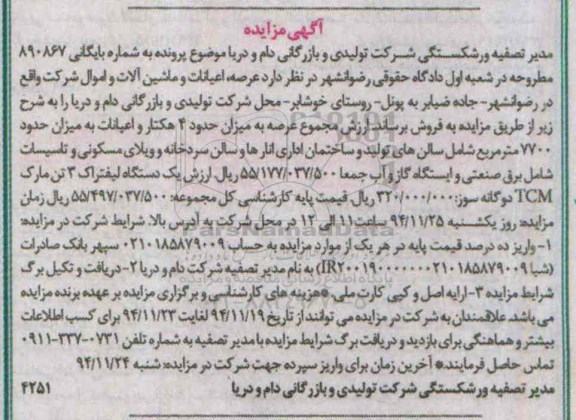 آگهی مزایده
مدیر تصفیه ورشکستگی شرکت تولیدی و بازرگانی دام و دریا موضوع پرونده به شماره بایگانی ۸۹۰۸۶۷
مطروحه در شعبه اول دادگاه حقوقی رضوانشهر در نظر دارد عرصه، اعیانات و ماشین آلات و اموال شرکت واقع
در رضوانشهر- جاده ضیابر به پونل- روستای خوشابر- محل شرکت تولیدی و بازرگانی دام و دریا را به شرح
زیر از طریق مزایده به فروش برساند. ارزش مجموع عرصه به میزان حدود ۴ هکتار و اعیانات به میزان حدود
۷۷۰۰ متر مربع شامل سالن های تولید و ساختمان اداری انبار ها و سالن سردخانه و ویلای مسکونی و تاسیسات
شامل برق صنعتی و ایستگاه گاز و آب جمعا ۵۵/۱۷۷/۰۳۷/۵۰۰ ریال. ارزش یک دستگاه لیفتراک ۳ تن مارک
TCM دوگانه سوز: ۳۲۰/۰۰۰/۰۰۰ ریال. قیمت پایه کارشناسی کل مجموعه: ۵۵/۴۹۷/۰۳۷/۵۰۰ ریال زمان
مزایده: روز یکشنبه ۹۴/۱۱/۲۵ ساعت ۱۱ الی ۱۲ در محل شرکت به آدرس بالا. شرایط شرکت در مزایده:
۱- واریز ده درصد قیمت پایه در هر یک از موارد مزایده به حساب ۰۲۱۰۱۸۵۸۷۹۰۰۹ سپهر بانک صادرات
(شبا IR۲۰۰۱۹۰۰۰۰۰۰۰۰۲۱۰۱۸۵۸۷۹۰۰۹) به نام مدیر تصفیه شرکت دام و دریا ۲- دریافت و تکمیل برگ
شرایط مزایده ۳- ارایه اصل و کپی کارت ملی. *هزینه های کارشناسی و برگزاری مزایده بر عهده برنده مزایده
می باشد. علاقمندان به شرکت در مزایده می توانند از تاریخ ۹۴/۱۱/۱۹ لغایت ۹۴/۱۱/۲۳ برای کسب اطلاعات
بیشتر و هماهنگی برای بازدید و دریافت برگ شرایط مزایده با مدیر تصفیه به شماره تلفن ۰۷۳۱-۳۳۷-۰۹۱۱
تماس حاصل فرمایند.* آخرین زمان برای واریز سپرده جهت شرکت در مزایده: شنبه ۹۴/۱۱/۲۴
مدیر تصفیه ورشکستگی شرکت تولیدی و بازرگانی دام و دریا ۴۲۵۱
ParsNamadData
پایگاه اطلاع رسانی مناقصه و مزایده